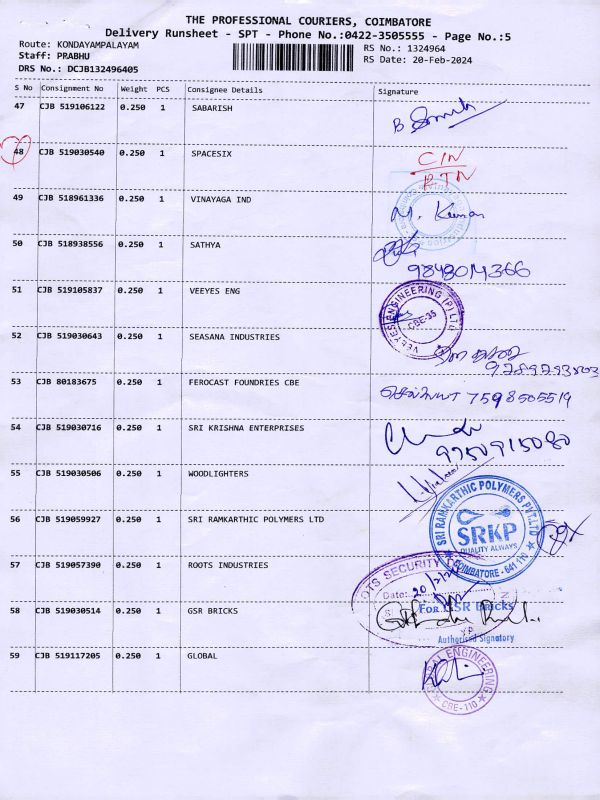 THE PROFESSIONAL COURIERS, COIMBATORE
Delivery Runsheet - SPT - Phone No.:0422-3505555 - Page No.:5
Route: KONDAYAMPALAYAM
Staff: PRABHU
DRS No.: DCJB132496405
RS No.: 1324964
RS Date: 20-Feb-2024
S No Consignment No Weight PCS Consignee Details Signature
47 CJB 519106122 0.250 1 SABARISH
48 CJB 519030540 0.250 1 SPACESIX
CIN
RTN
49 CJB 518961336 0.250 1 VINAYAGA IND
M. Kumar
50 CJB 518938556 0.250 1 SATHYA
51 CJB 519105837 0.250 1 VEEYES ENG
VEEYES ENGINEERING (P) LTD
CBE-35
52 CJB 519030643 0.250 1 SEASANA INDUSTRIES
53 CJB 80183675 0.250 1 FEROCAST FOUNDRIES CBE
7598505519
54 CJB 519030716 0.250 1 SRI KRISHNA ENTERPRISES
9750915080
55 CJB 519030506 0.250 1 WOODLIGHTERS
56 CJB 519059927 0.250 1 SRI RAMKARTHIC POLYMERS LTD
SRI RAMKARTHIC POLYMERS PVT.LTD
SRKP
QUALITY ALWAYS
COIMBATORE - 641 110
57 CJB 519057390 0.250 1 ROOTS INDUSTRIES
OTS SECURITY
Date: 20/2/24
58 CJB 519030514 0.250 1 GSR BRICKS
For GSR Bricks
Authorised Signatory
59 CJB 519117205 0.250 1 GLOBAL
ENGINEERING
CBE-110